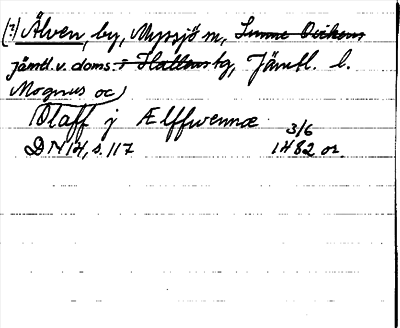 (?) Älven, by, Myssjö sn, Sunne Oviken
Jämtl. v. doms. i Hallens tg, Jämtl. l.
Magnus oc
Olaff j Ælffwennæ
3/6
DN 14, s. 117 1482 or.